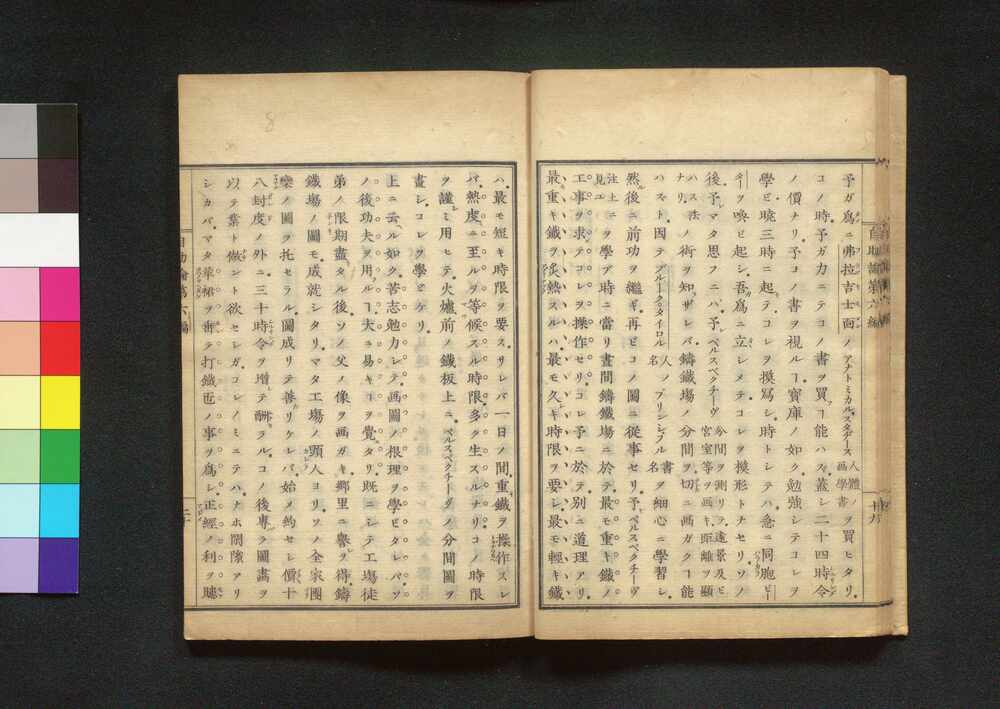 予ガ爲ニ弗拉吉士面ノアナトミカルスタデース人體画學書ヲ買ヒタリ
コノ時予ガ力ニテコノ書ヲ買フヿ能ハズ蓋シ二十四時令
ノ價ナリ予コノ書ヲ視ルヿ寶庫ノ如ク勉強シテコレヲ
學ビ曉三時ニ起テコレヲ摸寫シ時トシテハ急ニ同胞ピー
ターヲ喚ビ起シ吾爲ニ立シメテコレヲ模形トナセリソノ
後予マタ思フニハ予ペルスペクチーヴ分間ヲ測リ遠景及ビ宮室等ヲ画キ距離ヲ顯
ハス法ナリノ術ヲ知ザレバ鑄鐵場ノ分間ヲ切ニ画ガクヿ能
ハズト因テブルークタイロル人名ノプリンシプル書名ヲ細心ニ學習シ
然後ニ前功ヲ繼ギ再ビコノ圖ニ從事セリ予ペルスペクチーヴ
注上ニ見エヲ學ブ時ニ當リ晝間鑄鐵場ニ於テ最モ重キ鐵ノ
工事ヲ求テコレヲ操作セリコレ予ニ於テ別ニ道理アリ
最重キ鐵ヲ炙熱スルハ最モ久キ時限ヲ要シ最モ輕キ鐵
自助論第六編
十九
ハ最モ短キ時限ヲ要スサレバ一日ノ間重鐵ヲ操作スレ
バ熱度ニ至ルヲ等候スル時限多ク生スルナリコノ時限
ヲ謹ミ用ヒテ火爐前ノ鐵板上ニペルスペクチーヴノ分間圖ヲ
畫シコレヲ學ビケリ
上ニ云ル如ク苦志勉力シテ画圖ノ根理ヲ學ビタレバソ
ノ後功夫ヲ用ルヿ大ニ易キヿヲ覺タリ既ニシテ工塲徒
弟ノ限期盡タル後ソノ父ノ像ヲ画ガキ郷里ニ譽ヲ得鑄
鐵塲ノ圖モ成就シタリマタ工塲ノ頭人ヨリソノ全家團
欒ノ圖ヲ托セラル圖成リテ善リケレバ始ノ約セシ價十
八封度ノ外ニ三十時令ヲ增テ酬ラルコノ後專ラ圖畵ヲ
以テ業ト做ント欲セシガコレノミニテハナホ閑隙アリ
シカバマタ華裱ヲ善ラ打鐵匠ノ事ヲ爲シ正經ノ利ヲ贃
自助論第六編
二十